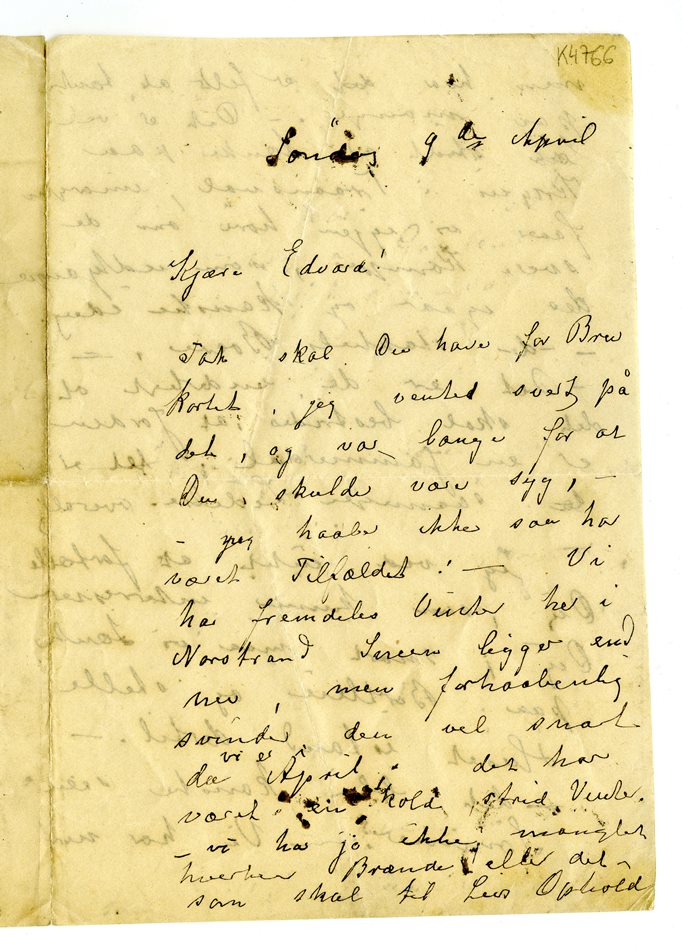 K4766
Söndag 9de April
Kjære Edvard!
Tak skal Du have for Brev
kortet, jeg vented svert på
det, og var bange for at
Du skulde være syg, –
– jeg haaber ikke saa har
været Tilfældet! – Vi
har fremdeles Vinter her i
Norstrand Sneen ligger end
nu, men forhaabenlig
svinder den vel snart
da vi er i April. det har
været en kold, strid Vinter.
– vi ha jo ikke manglet
hverken Brænde eller det –
som skal til Livs Ophold